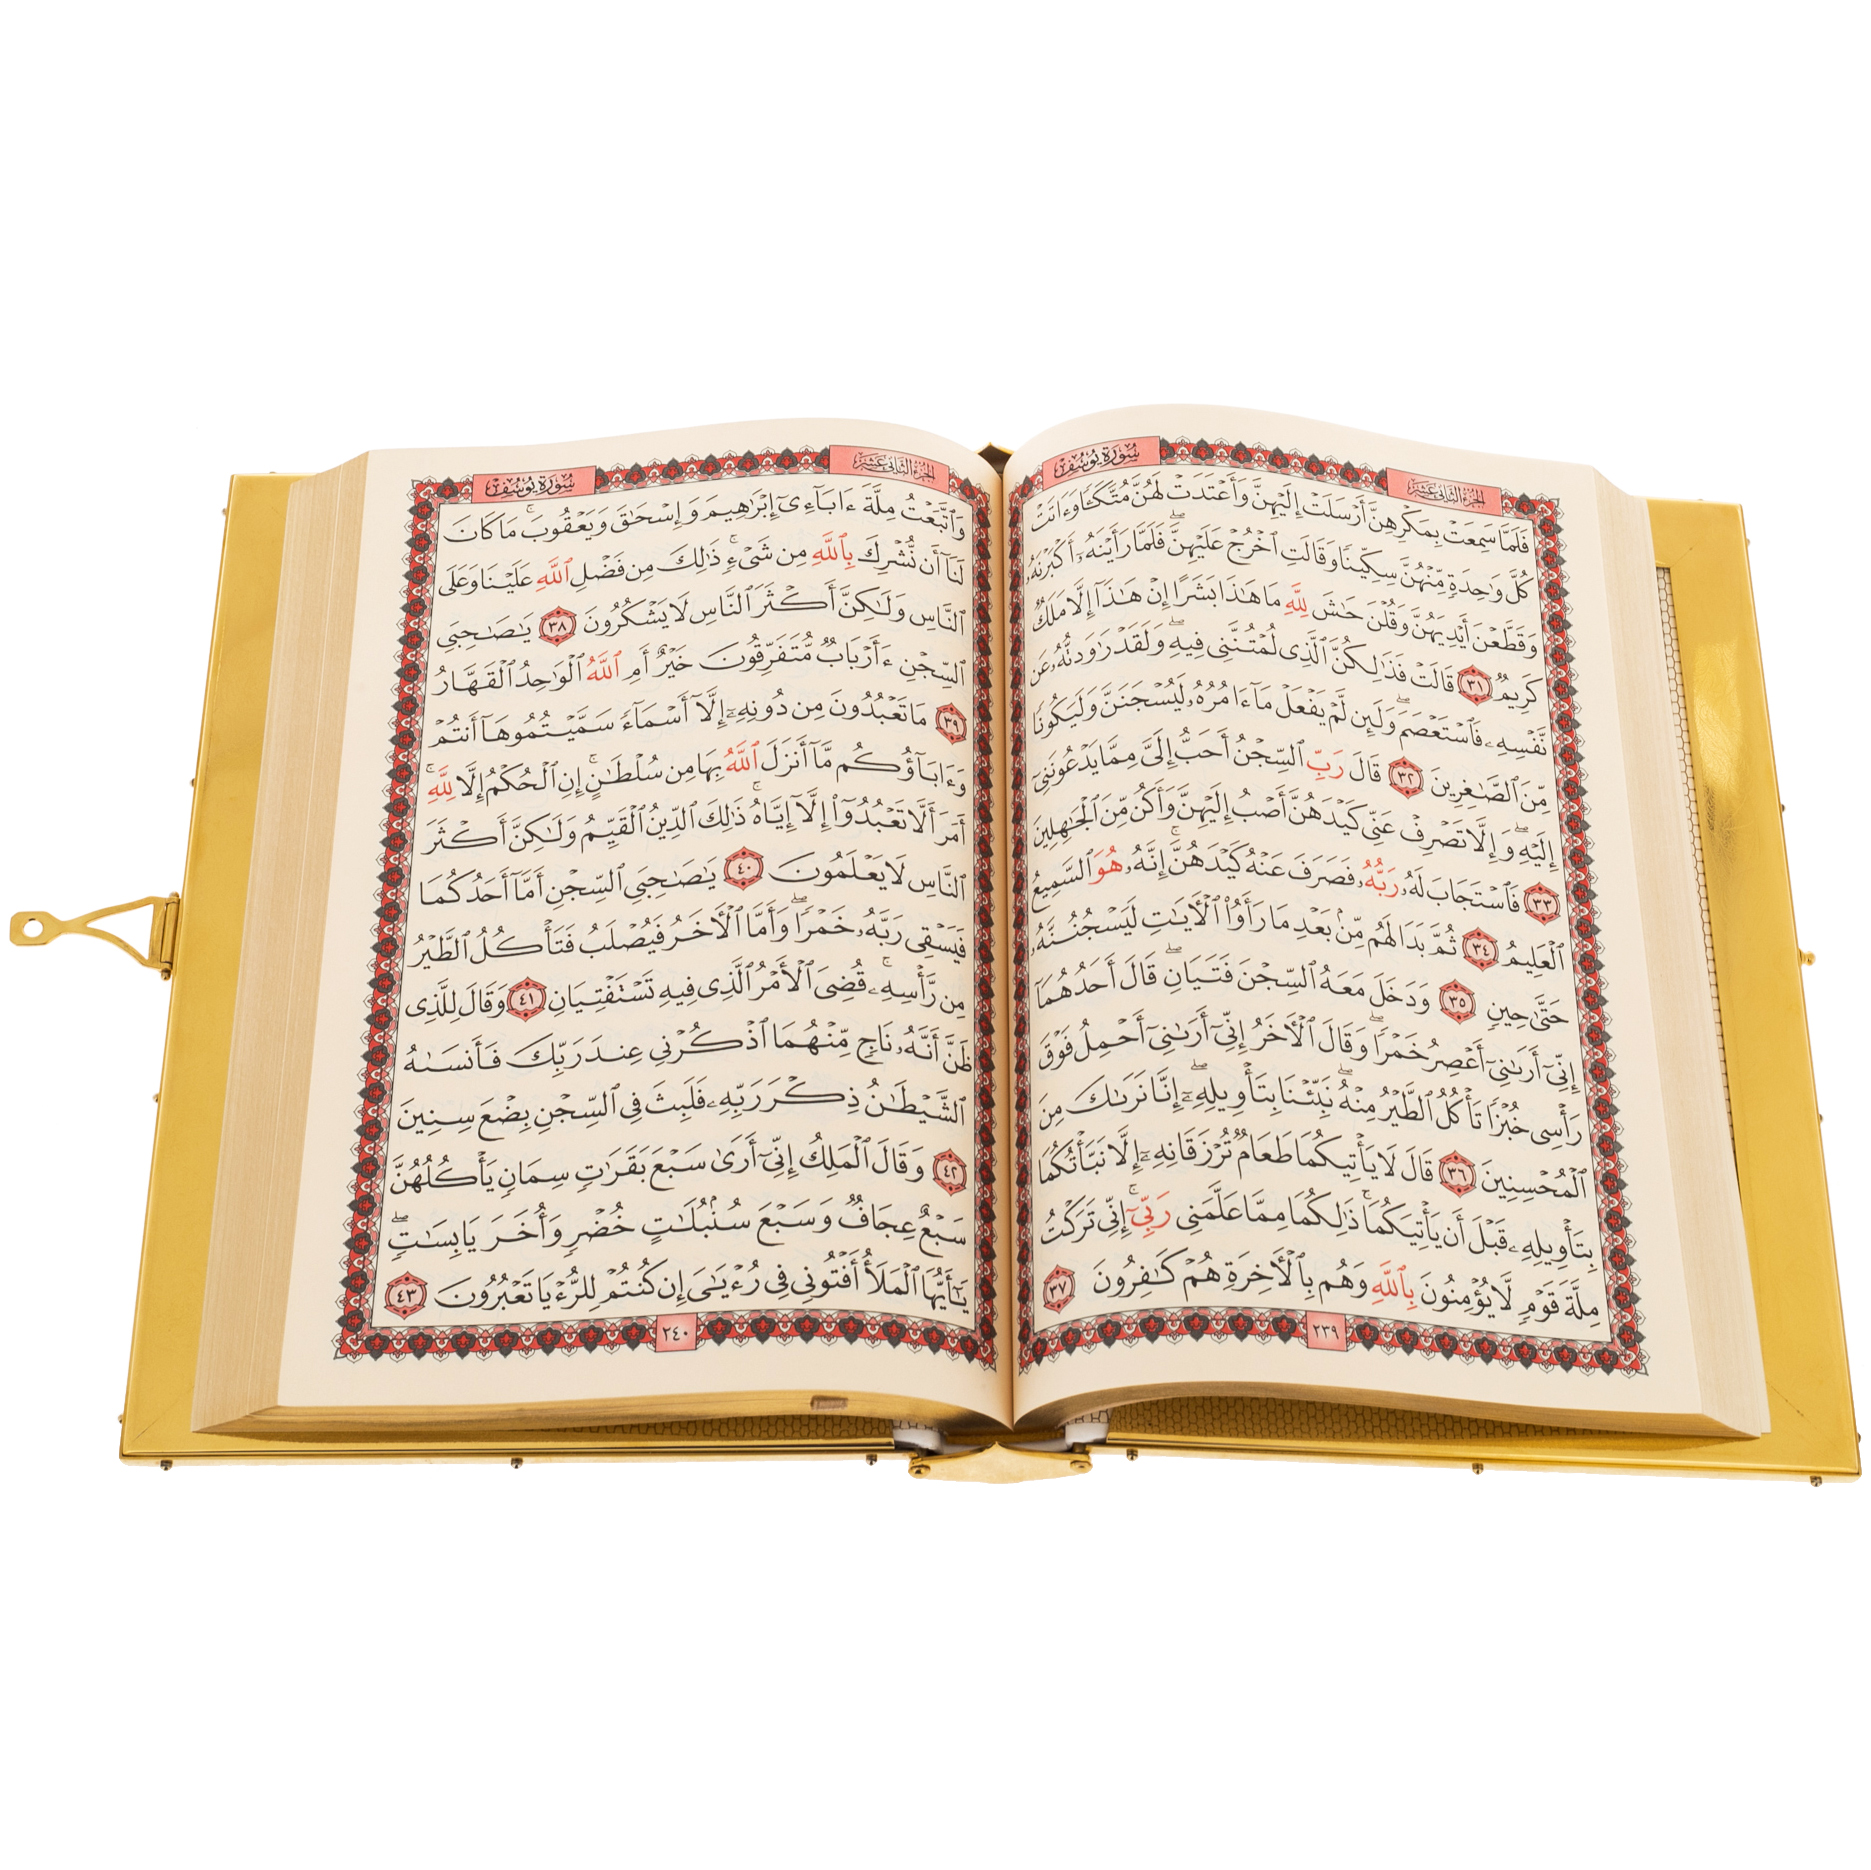 سُورَةُ يُوسُفَ
الجزء الثاني عشر
فَلَمَّا سَمِعَتْ بِمَكْرِهِنَّ أَرْسَلَتْ إِلَيْهِنَّ وَأَعْتَدَتْ لَهُنَّ مُتَّكَـًٔا وَءَاتَتْ
كُلَّ وَٰحِدَةٍ مِّنْهُنَّ سِكِّينًا وَقَالَتِ ٱخْرُجْ عَلَيْهِنَّ ۖ فَلَمَّا رَأَيْنَهُۥٓ أَكْبَرْنَهُۥ
وَقَطَّعْنَ أَيْدِيَهُنَّ وَقُلْنَ حَٰشَ لِلَّهِ مَا هَٰذَا بَشَرًا إِنْ هَٰذَآ إِلَّا مَلَكٌ
كَرِيمٌ ٣١ قَالَتْ فَذَٰلِكُنَّ ٱلَّذِى لُمْتُنَّنِى فِيهِ ۖ وَلَقَدْ رَٰوَدتُّهُۥ عَن
نَّفْسِهِۦ فَٱسْتَعْصَمَ ۖ وَلَئِن لَّمْ يَفْعَلْ مَآ ءَامُرُهُۥ لَيُسْجَنَنَّ وَلَيَكُونًا
مِّنَ ٱلصَّٰغِرِينَ ٣٢ قَالَ رَبِّ ٱلسِّجْنُ أَحَبُّ إِلَىَّ مِمَّا يَدْعُونَنِىٓ
إِلَيْهِ ۖ وَإِلَّا تَصْرِفْ عَنِّى كَيْدَهُنَّ أَصْبُ إِلَيْهِنَّ وَأَكُن مِّنَ ٱلْجَٰهِلِينَ
٣٣ فَٱسْتَجَابَ لَهُۥ رَبُّهُۥ فَصَرَفَ عَنْهُ كَيْدَهُنَّ ۚ إِنَّهُۥ هُوَ ٱلسَّمِيعُ
ٱلْعَلِيمُ ٣٤ ثُمَّ بَدَا لَهُم مِّنۢ بَعْدِ مَا رَأَوُا۟ ٱلْأَيَٰتِ لَيَسْجُنُنَّهُۥ
حَتَّىٰ حِينٍ ٣٥ وَدَخَلَ مَعَهُ ٱلسِّجْنَ فَتَيَانِ ۖ قَالَ أَحَدُهُمَآ
إِنِّىٓ أَرَىٰنِىٓ أَعْصِرُ خَمْرًا ۖ وَقَالَ ٱلْأَخَرُ إِنِّىٓ أَرَىٰنِىٓ أَحْمِلُ فَوْقَ
رَأْسِى خُبْزًا تَأْكُلُ ٱلطَّيْرُ مِنْهُ ۖ نَبِّئْنَا بِتَأْوِيلِهِۦٓ ۖ إِنَّا نَرَىٰكَ مِنَ
ٱلْمُحْسِنِينَ ٣٦ قَالَ لَا يَأْتِيكُمَا طَعَامٌ تُرْزَقَانِهِۦٓ إِلَّا نَبَّأْتُكُمَا
بِتَأْوِيلِهِۦ قَبْلَ أَن يَأْتِيَكُمَا ۚ ذَٰلِكُمَا مِمَّا عَلَّمَنِى رَبِّىٓ ۚ إِنِّى تَرَكْتُ
مِلَّةَ قَوْمٍ لَّا يُؤْمِنُونَ بِٱللَّهِ وَهُم بِٱلْأَخِرَةِ هُمْ كَٰفِرُونَ ٣٧
٢٣٩
الجزء الثاني عشر
سُورَةُ يُوسُفَ
وَٱتَّبَعْتُ مِلَّةَ ءَابَآءِىٓ إِبْرَٰهِيمَ وَإِسْحَٰقَ وَيَعْقُوبَ ۚ مَا كَانَ
لَنَآ أَن نُّشْرِكَ بِٱللَّهِ مِن شَىْءٍ ۚ ذَٰلِكَ مِن فَضْلِ ٱللَّهِ عَلَيْنَا وَعَلَى
ٱلنَّاسِ وَلَٰكِنَّ أَكْثَرَ ٱلنَّاسِ لَا يَشْكُرُونَ ٣٨ يَٰصَٰحِبَىِ
ٱلسِّجْنِ ءَأَرْبَابٌ مُّتَفَرِّقُونَ خَيْرٌ أَمِ ٱللَّهُ ٱلْوَٰحِدُ ٱلْقَهَّارُ
٣٩ مَا تَعْبُدُونَ مِن دُونِهِۦٓ إِلَّآ أَسْمَآءً سَمَّيْتُمُوهَآ أَنتُمْ
وَءَابَآؤُكُم مَّآ أَنزَلَ ٱللَّهُ بِهَا مِن سُلْطَٰنٍ ۚ إِنِ ٱلْحُكْمُ إِلَّا لِلَّهِ ۚ
أَمَرَ أَلَّا تَعْبُدُوٓا۟ إِلَّآ إِيَّاهُ ۚ ذَٰلِكَ ٱلدِّينُ ٱلْقَيِّمُ وَلَٰكِنَّ أَكْثَرَ
ٱلنَّاسِ لَا يَعْلَمُونَ ٤٠ يَٰصَٰحِبَىِ ٱلسِّجْنِ أَمَّآ أَحَدُكُمَا
فَيَسْقِى رَبَّهُۥ خَمْرًا ۖ وَأَمَّا ٱلْأَخَرُ فَيُصْلَبُ فَتَأْكُلُ ٱلطَّيْرُ
مِن رَّأْسِهِۦ ۚ قُضِىَ ٱلْأَمْرُ ٱلَّذِى فِيهِ تَسْتَفْتِيَانِ ٤١ وَقَالَ لِلَّذِى
ظَنَّ أَنَّهُۥ نَاجٍ مِّنْهُمَا ٱذْكُرْنِى عِندَ رَبِّكَ فَأَنسَىٰهُ
ٱلشَّيْطَٰنُ ذِكْرَ رَبِّهِۦ فَلَبِثَ فِى ٱلسِّجْنِ بِضْعَ سِنِينَ
٤٢ وَقَالَ ٱلْمَلِكُ إِنِّىٓ أَرَىٰ سَبْعَ بَقَرَٰتٍ سِمَانٍ يَأْكُلُهُنَّ
سَبْعٌ عِجَافٌ وَسَبْعَ سُنۢبُلَٰتٍ خُضْرٍ وَأُخَرَ يَابِسَٰتٍ ۖ
يَٰٓأَيُّهَا ٱلْمَلَأُ أَفْتُونِى فِى رُءْيَٰىَ إِن كُنتُمْ لِلرُّءْيَا تَعْبُرُونَ ٤٣
٢٤٠